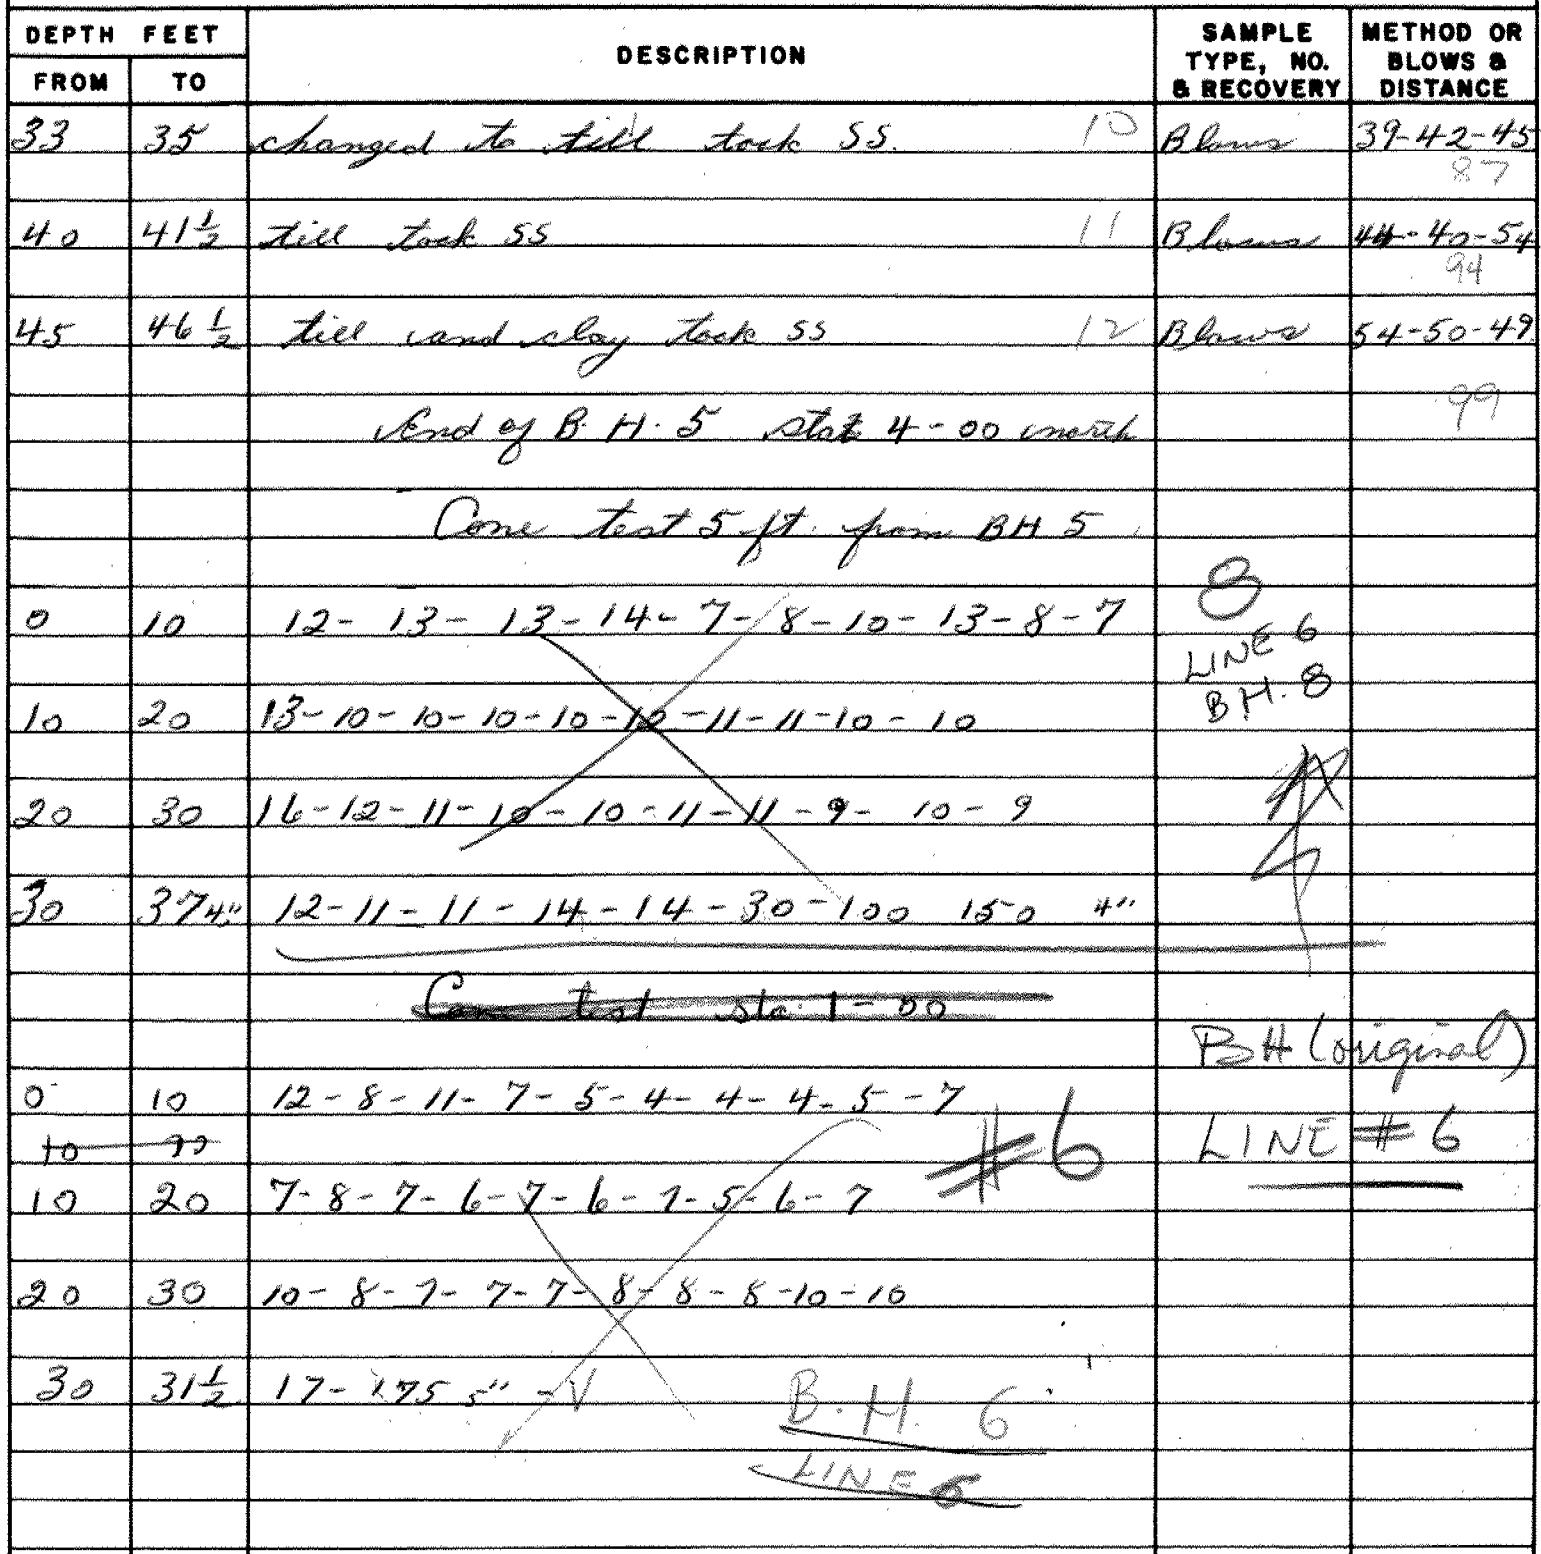 DEPTH FEET DESCRIPTION SAMPLE TYPE, NO. & RECOVERY METHOD OR BLOWS & DISTANCE
FROM TO
33 35 changed to till took SS. 10 Blows 39-42-45
87
40 41½ till took SS 11 Blows 44-40-54
94
45 46½ till and clay took SS 12 Blows 54-50-49
99
End of B.H.5 stat 4-00 north
Cone test 5 ft. from BH 5
8
0 10 12- 13- 13- 14- 7- 8- 10- 13- 8- 7
LINE 6
B.H. 8
10 20 13- 10- 10- 10- 10- 10- 11- 11- 10- 10
20 30 16-12-11-10-10-11-11-9- 10-9
30 37 4" 12-11-11-14-14-30-100 150 4"
Cone test sta 1-00
BH (original)
0 10 12-8-11-7-5-4-4-4-5-7
#6
LINE # 6
10 20 7-8-7-6-7-6-7-5-6-7
20 30 10-8-7-7-7-8-8-8-10-10
30 31½ 17- 175 5"
B.H. 6
LINE 6